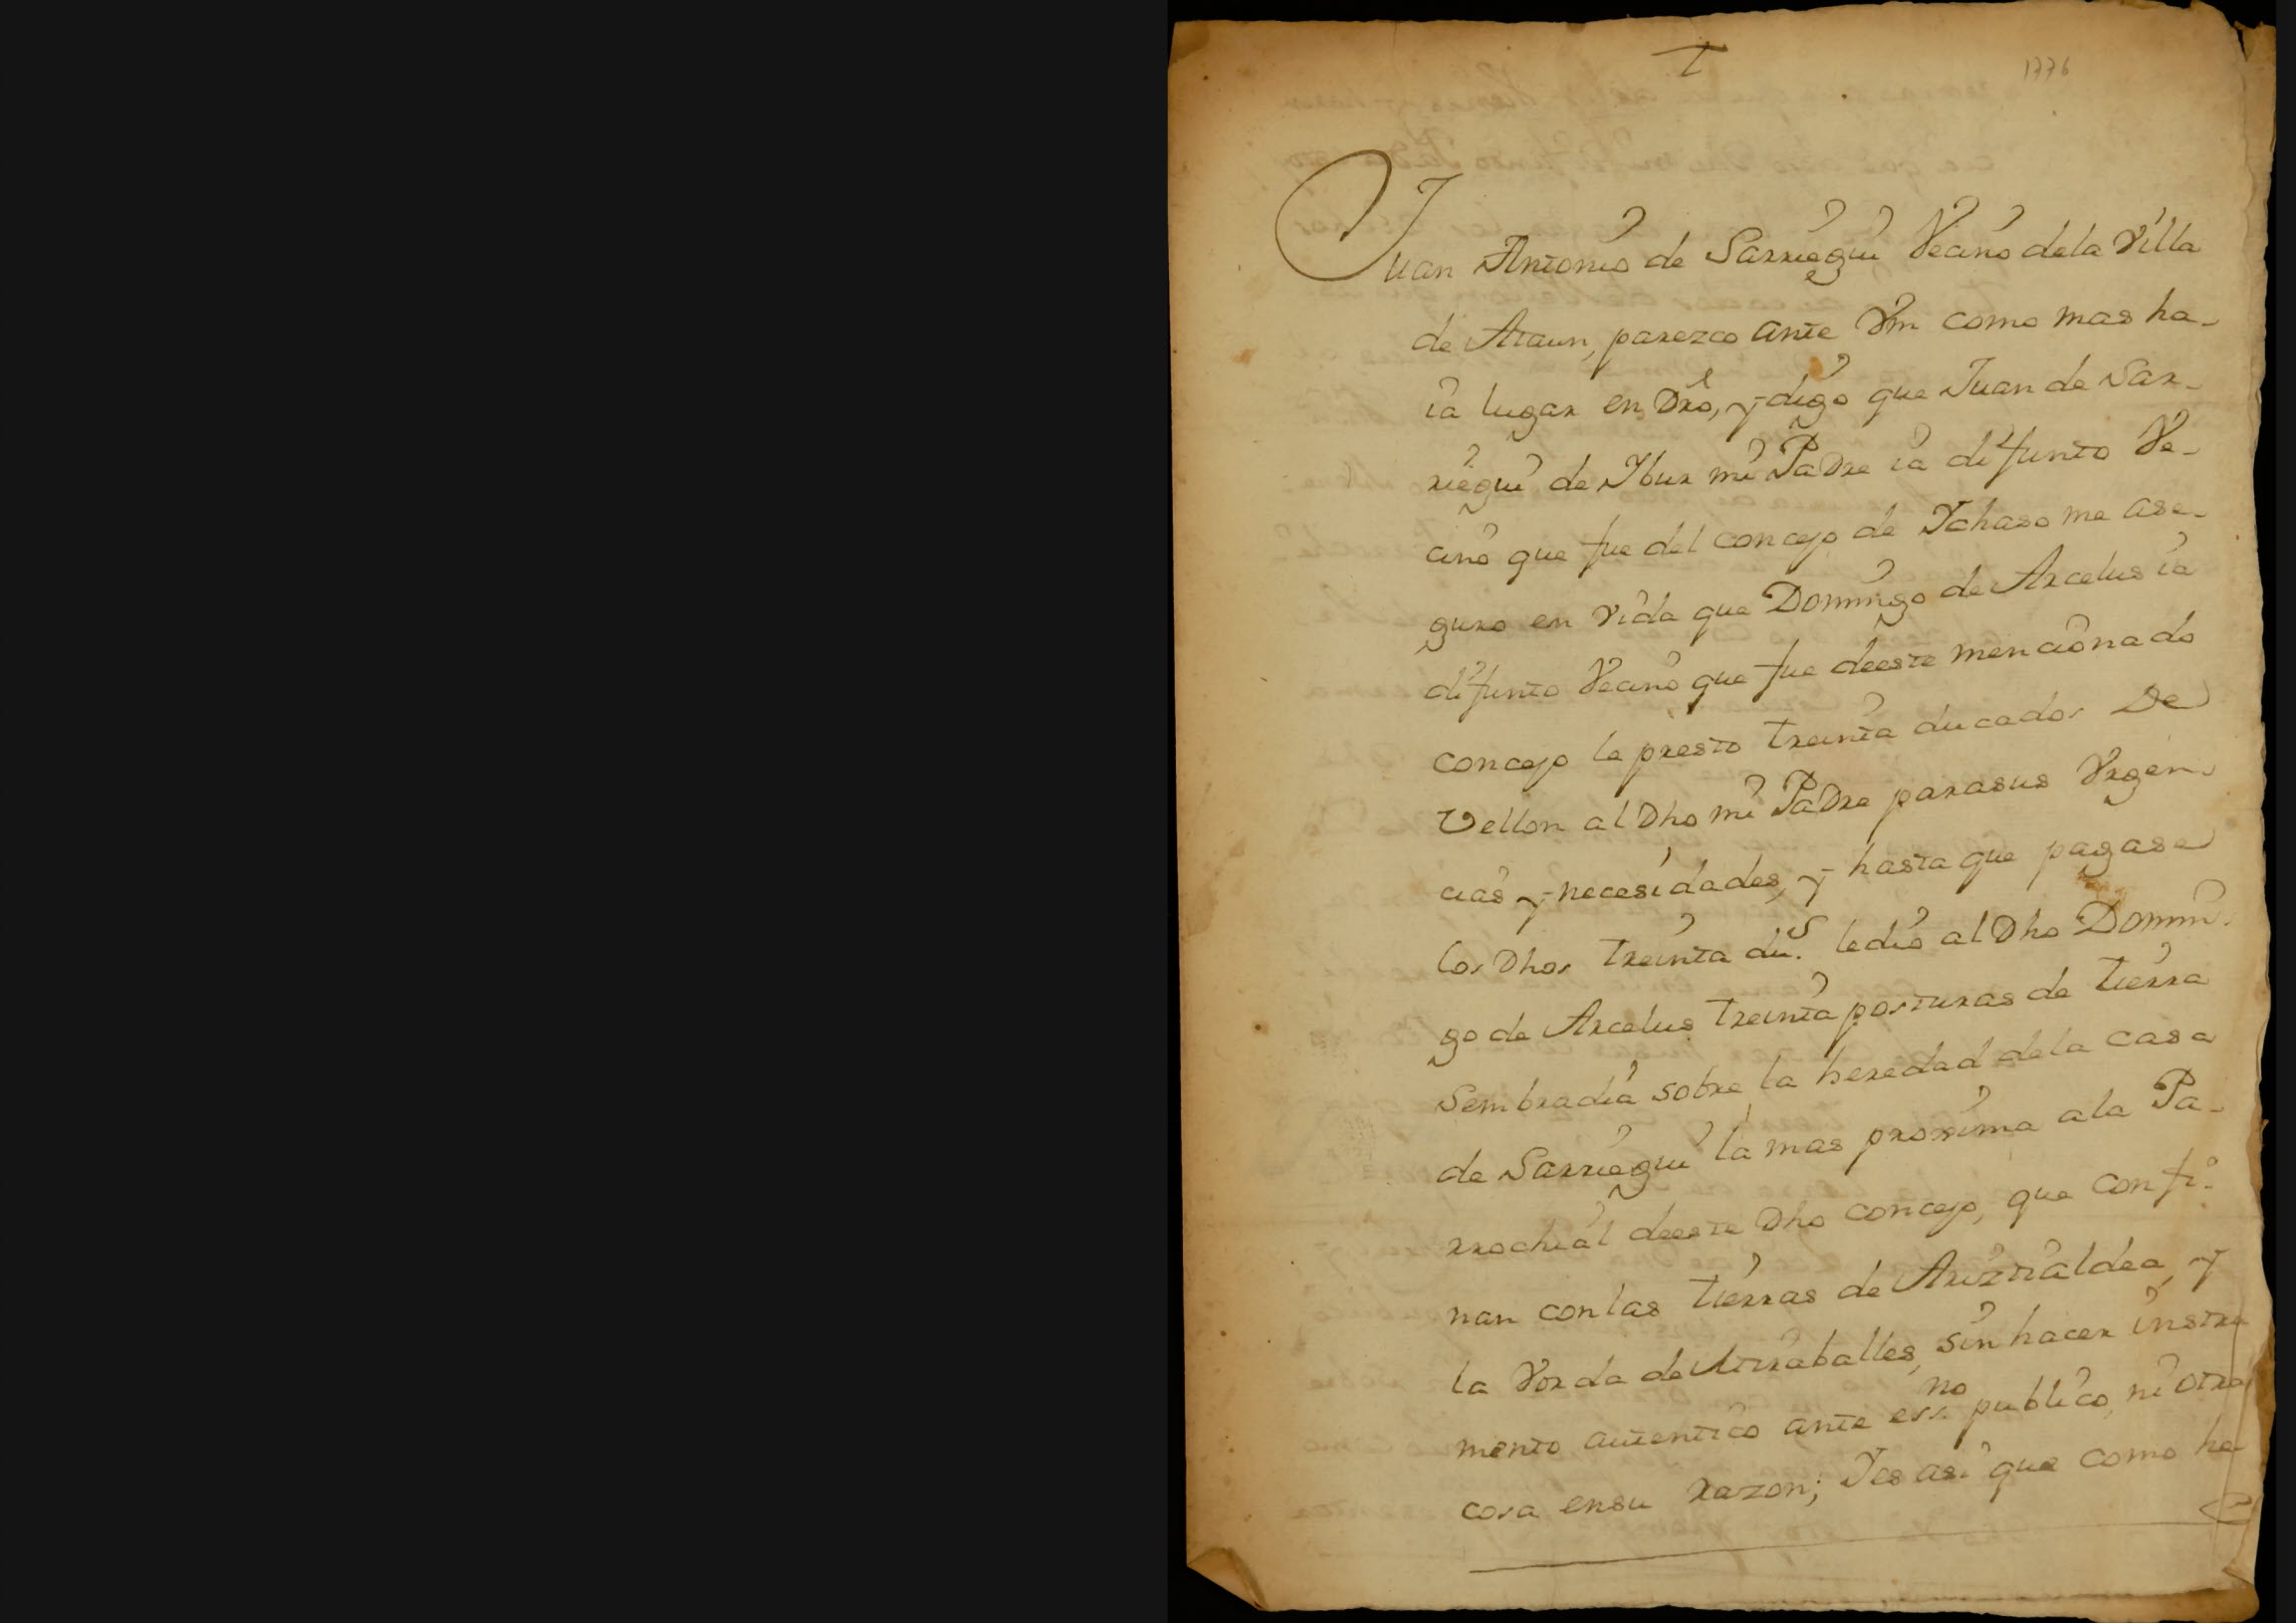 1776
Juan Antonio de Sarriegui Vecino dela Villa
de Ataun, parezco ante Vm como mas ha-
ia lugar en Dro, y digo que Juan de Sar-
riegui de Ibur mi Padre ia difunto Ve-
cino que fue del concejo de Ychaso me ase-
guro en vida que Domingo de Arcelus ia
difunto Vecino que fue deeste mencionado
concejo le presto treinta ducados De
Vellon al Dho mi Padre parasus Vrgen-
cias y necesidades, y hasta que pagase
los Dhos treinta dus. ledio al Dho Domin-
go de Arcelus treinta posturas de tierra
Sembradia sobre la heredad dela casa
de Sarriegui la mas proxima ala Pa-
rrochial deeste Dho concejo, que confi-
nan conlas tierras de Ariztialdea, y
la Vorda de Urraballes, sin hacer instru
mento autentico ante essno publico, ni otra
cosa ensu razon; Yes asi que como he